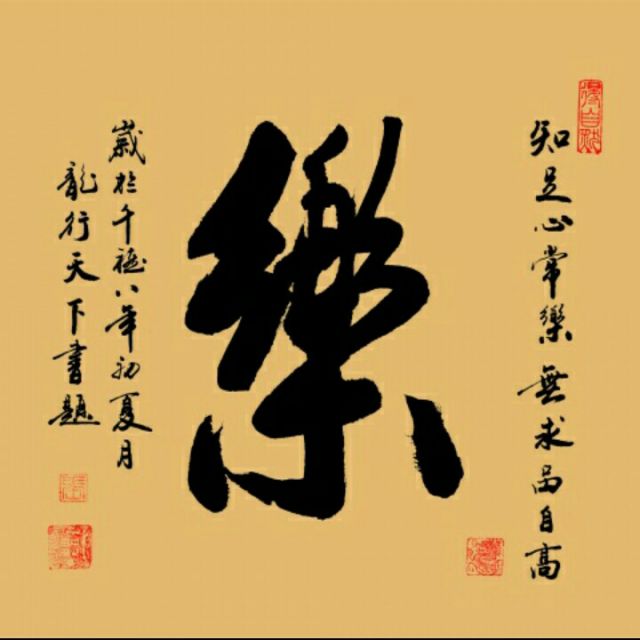 知足心常樂 無求品自高
樂
歲於千禧八年初夏月
龍行天下書題